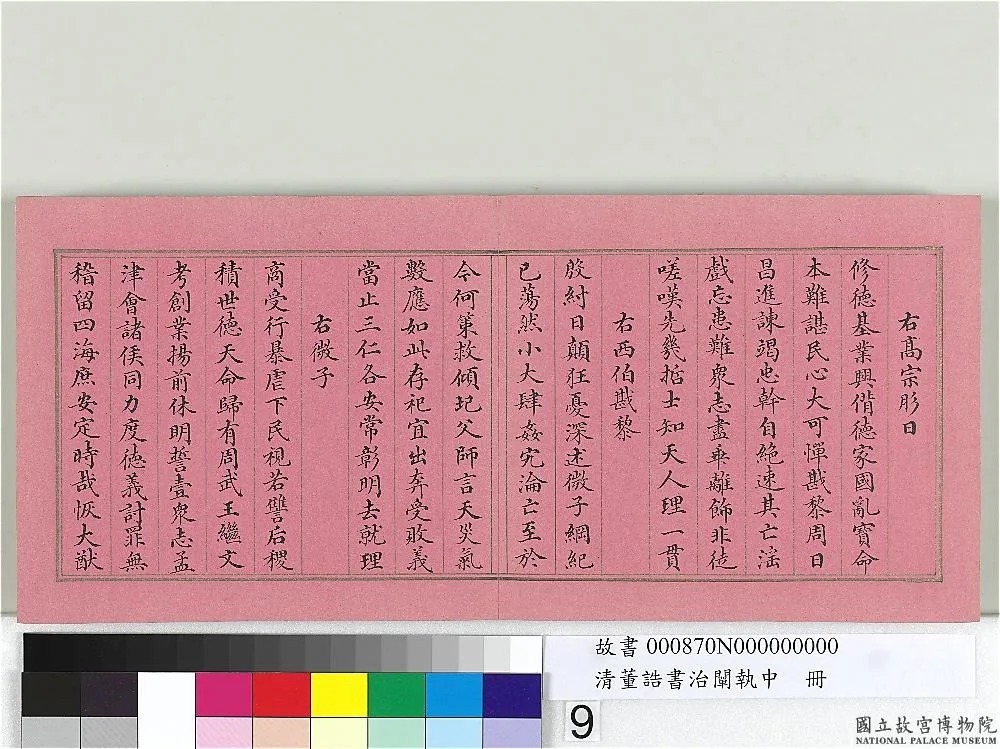 右高宗肜日
修德基業興僣德家國亂寶命
本難諶民心大可憚戡黎周日
昌進諫竭忠幹自絕速其亡滛
戲忘患難衆志盡乖離飾非徒
嗟嘆先幾哲士知天人理一貫
右西伯戡黎
殷紂日顛狂憂深述微子綱紀
已蕩然小大肆姦宄淪亡至於
今何策救傾圮父師言天災氣
數應如此存祀宜出奔受敗義
當止三仁各安常彰明去就理
右微子
商受行暴虐下民視若讐后稷
積世德天命歸有周武王繼文
考創業揚前休明誓壹衆志孟
津會諸侯同力度德義討罪無
稽留四海庶安定時哉恢大猷
故書 000870N000000000
清董誥書治闡執中 冊
9
國立故宮博物院
NATIONAL PALACE MUSEUM